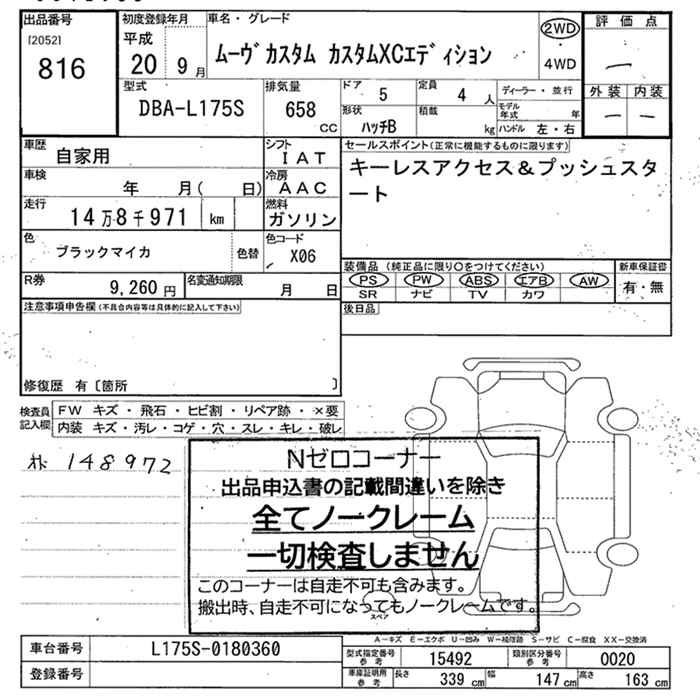 出品番号
[2052]
816
初度登録年月
平成
20 9月
車名・グレード
ムーヴ カスタム カスタムXCエディション
2WD
・
4WD
評価点
外装 内装
型式
DBA-L175S
排気量
658
CC
ドア 5
定員 4 人
形状
ハッチB
積載
kg
ディーラー・並行
モデル年式 年
ハンドル 左・右
車歴
自家用
シフト
IAT
車検
年 月( 日)
冷房
AAC
走行
14万8千971 km
燃料
ガソリン
色
ブラックマイカ
色替
色コード
X06
R券
9,260 円
名変通知期限
月 日
セールスポイント(正常に機能するものに限ります)
キーレスアクセス&プッシュスタ
ート
装備品(純正品に限り○をつけてください)
新車保証書
PS PW ABS エアB AW
SR ナビ TV カワ
有・無
後日品
注意事項申告欄(不具合内容等は具体的に記入して下さい)
修復歴 有〔箇所 〕
検査員
記入欄
FW キズ・飛石・ヒビ割・リペア跡・×要
内装 キズ・汚レ・コゲ・穴・スレ・キレ・破レ
148972
Nゼロコーナー
出品申込書の記載間違いを除き
全てノークレーム
一切検査しません
このコーナーは自走不可も含みます。
搬出時、自走不可になってもノークレームです。
スペア
A-キズ E-エクボ U-凹み W-補修跡 S-サビ C-腐食 XX-交換済
車台番号
L175S-0180360
登録番号
型式指定番号
参考
15492
類別区分番号
参考
0020
車庫証明用
参考
長さ 339 cm
幅 147 cm
高さ 163 cm